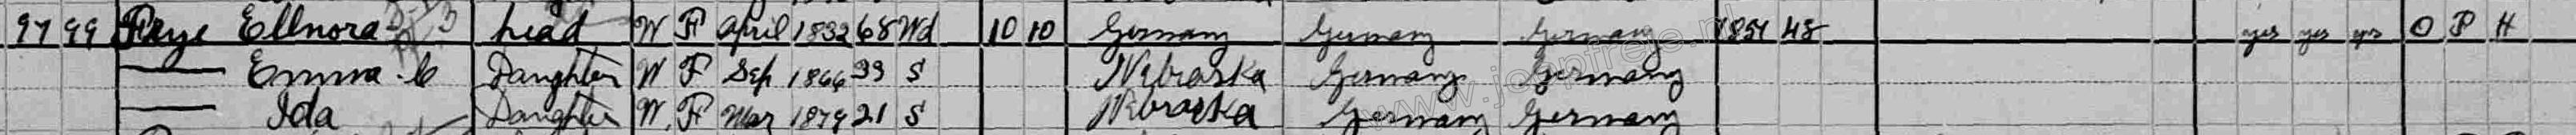 97 99 Frye Ellnora head W F April 1832 68 Wd 10 10 Germany Germany Germany 1851 48 yes yes yes O F H
Emma C Daughter W F Sep 1866 33 S Nebraska Germany Germany
Ida Daughter W F Mar 1879 21 S Nebraska Germany Germany